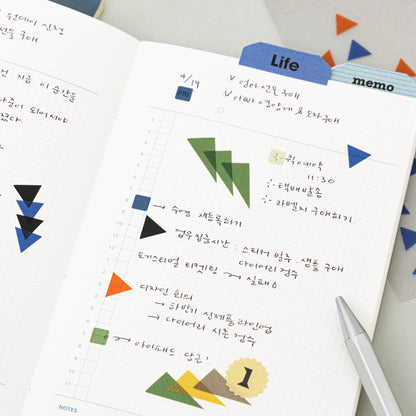 선물 구매
Life
memo
4/19
엄마 선물 구매
아빠 영양제 & 모자구매
퀵예약
11:30
택배발송
라벨지 구매하기
→ 수영 재등록하기
업무집중시간 : 스티커 발주. 샘플 구매
다이어리 검수
페스티벌 티켓팅 → 실패
디자인 회의
→ 하반기 신제품 라인업
→ 다이어리 시즌 검수
→ 아이패드 당근!
1
NOTES